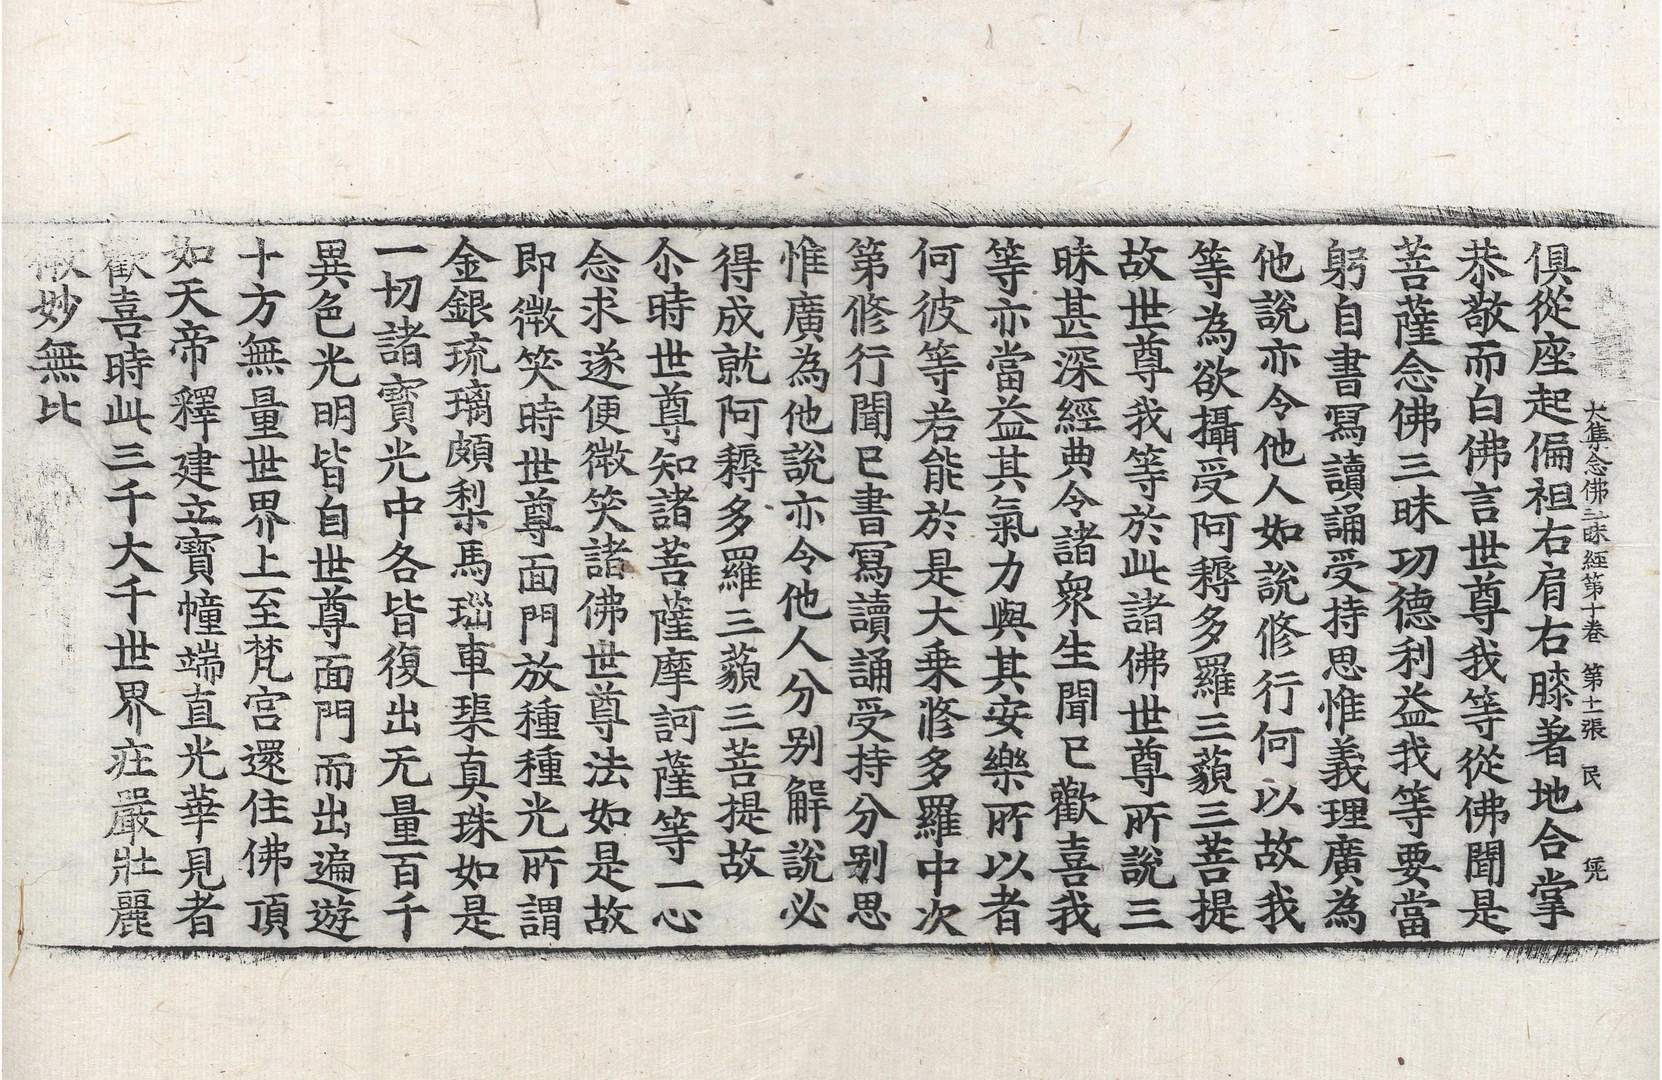 大集念佛三昧經第十卷 第十一張 民
俱從座起偏袒右肩右膝著地合掌
恭敬而白佛言世尊我等從佛聞是
菩薩念佛三昧功德利益我等要當
躬自書寫讀誦受持思惟義理廣為
他說亦令他人如說修行何以故我
等為欲攝受阿耨多羅三藐三菩提
故世尊我等於此諸佛世尊所說三
昧甚深經典令諸衆生聞已歡喜我
等亦當益其氣力與其安樂所以者
何彼等若能於是大乗修多羅中次
第修行聞已書寫讀誦受持分别思
惟廣為他說亦令他人分别解說必
得成就阿耨多羅三藐三菩提故
尒時世尊知諸菩薩摩訶薩等一心
念求遂便微笑諸佛世尊法如是故
即微笑時世尊面門放種種光所謂
金銀琉璃頗梨馬瑙車璖真珠如是
一切諸寶光中各皆復出无量百千
異色光明皆自世尊面門而出遍遊
十方無量世界上至梵宮還住佛頂
如天帝釋建立寶幢端直光華見者
歡喜時此三千大千世界庄嚴壯麗
微妙無比